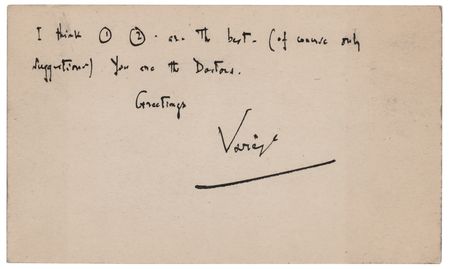 I think ① ②. are the best. (of course only
suggestions) You are the Doctors.
Greetings
Varèse